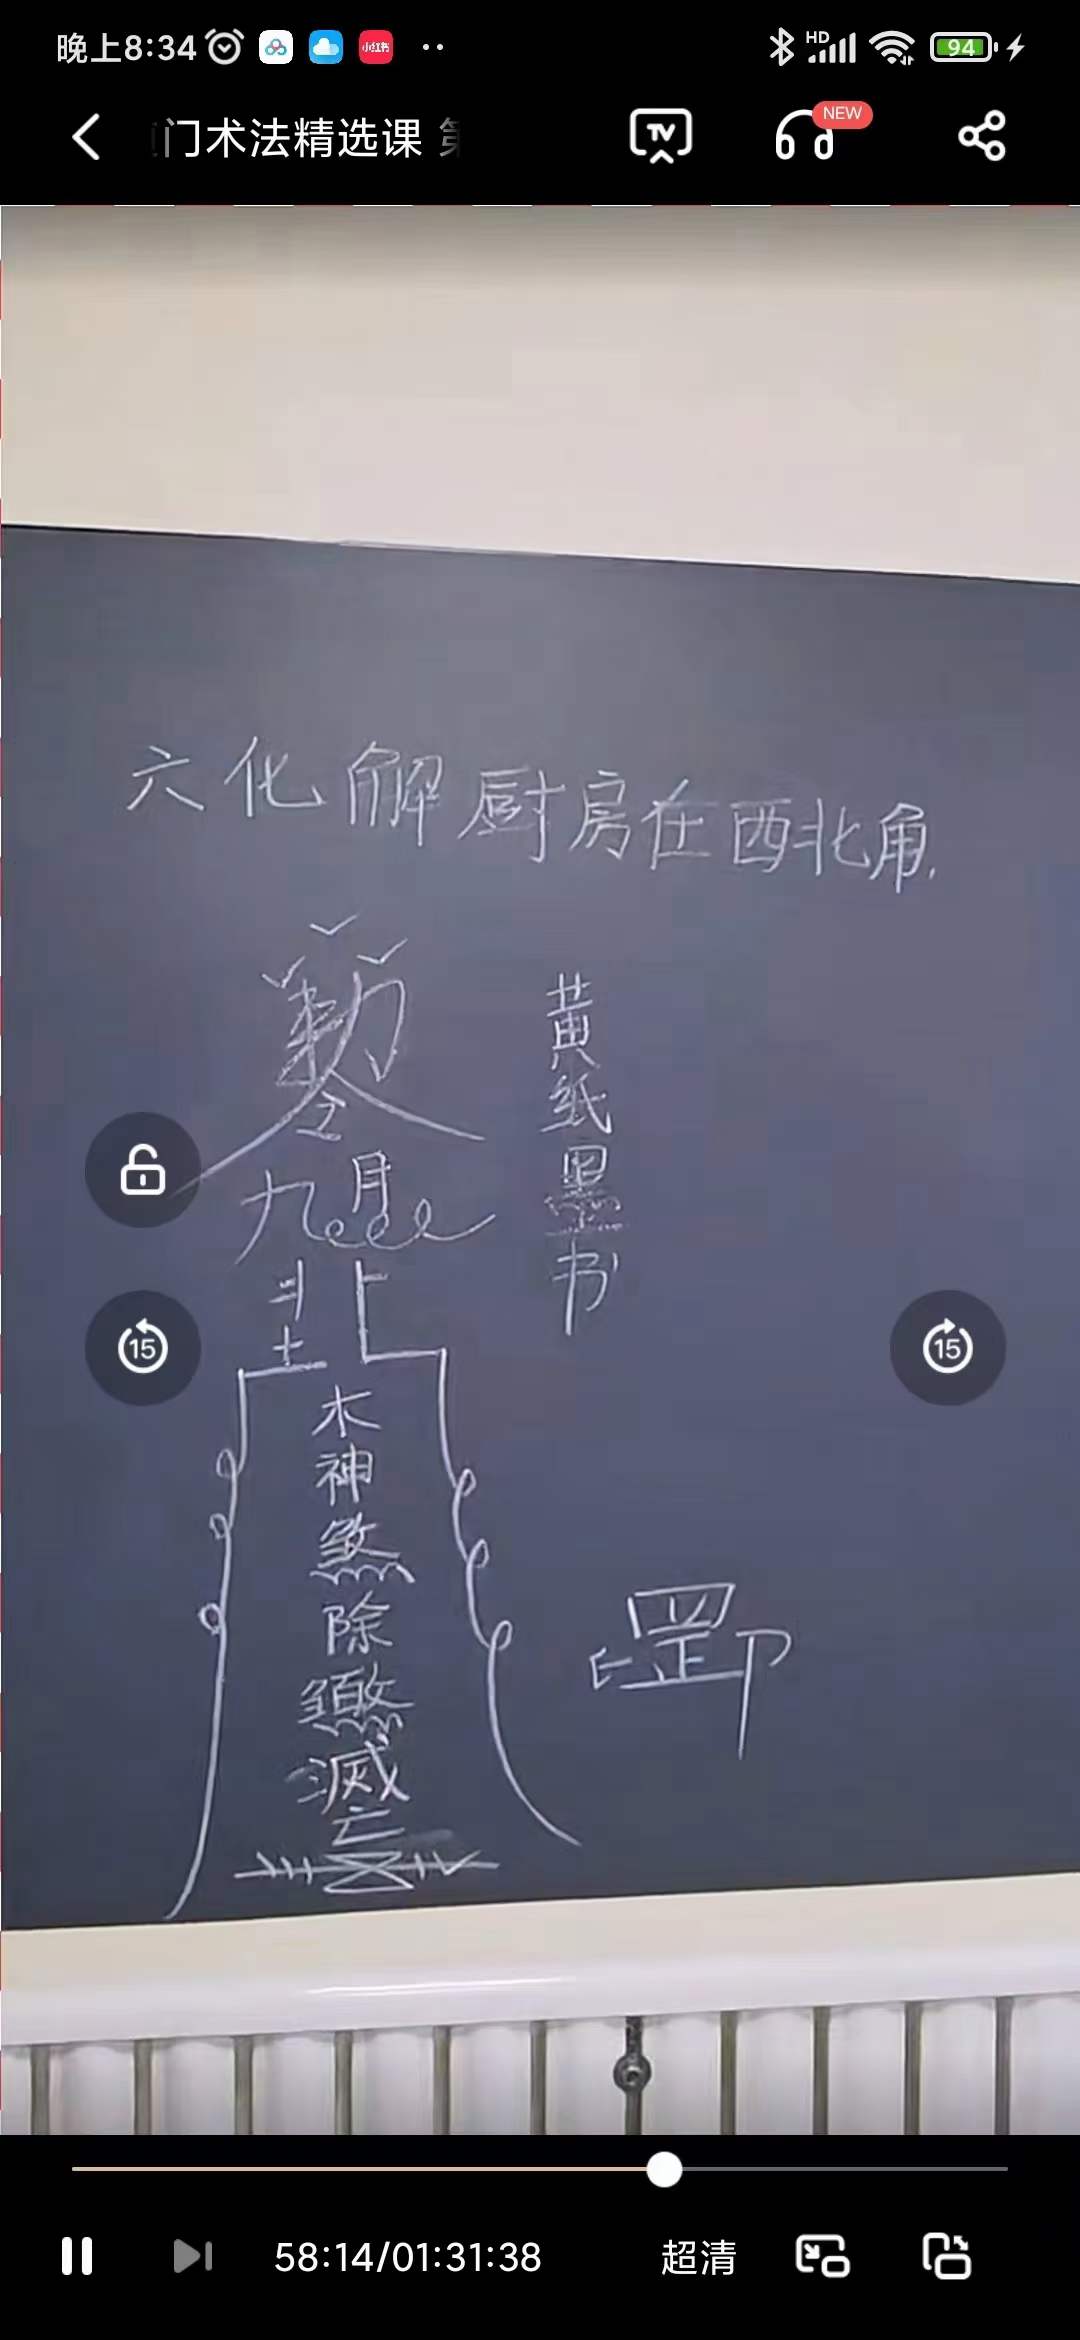 晚上8:34
小红书
HD
94
门术法精选课 第
TV
NEW
六化解厨房在西北角.
敕
令
九月
斗
土
木
神
煞
除
滅
亡
黄纸墨书
罡
15
15
58:14/01:31:38
超清